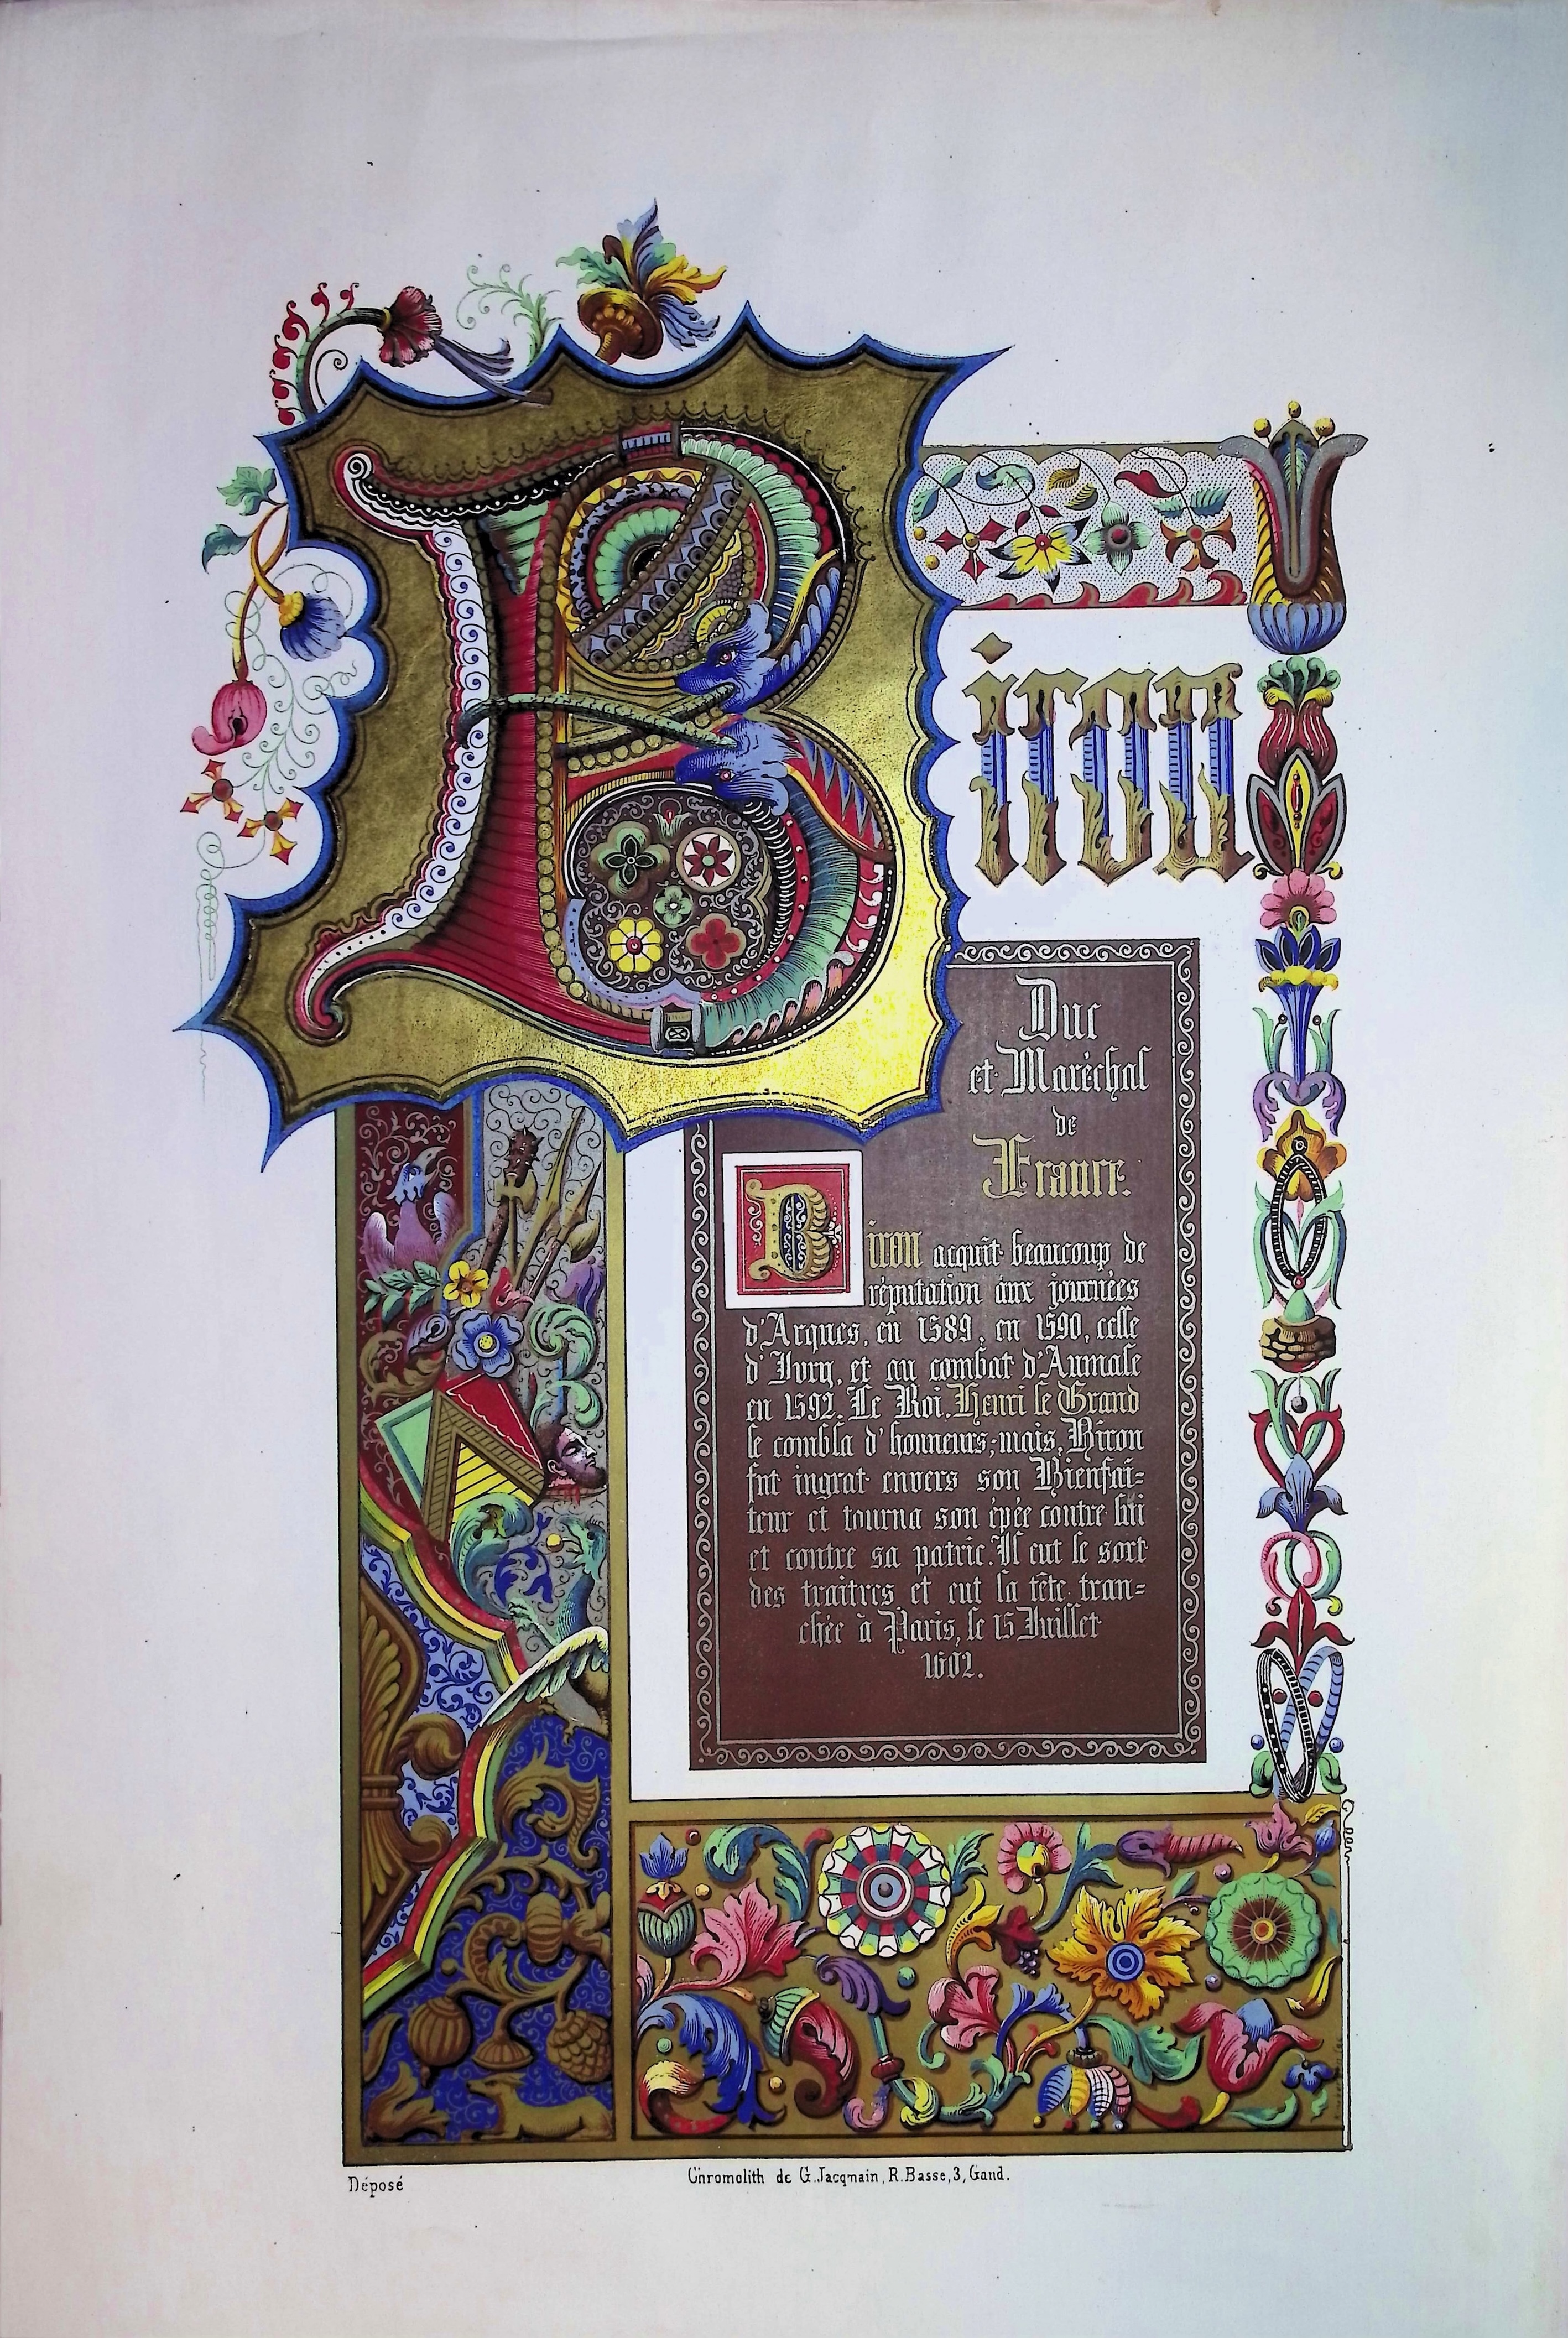 Biron
Duc
et Maréchal
de
France.
Biron acquit beaucoup de
réputation aux journées
d'Arques, en 1589, en 1590, celle
d'Ivry, et au combat d'Aumale
en 1592. Le Roi, Henri le Grand
le combla d'honneurs; mais, Biron
fut ingrat envers son Bienfai=
teur et tourna son épée contre lui
et contre sa patrie. Il eut le sort
des traitres et eut la tête tran=
chée à Paris, le 15 Juillet
1602.
Déposé
Chromolith de G. Jacqmain, R. Basse, 3, Gand.